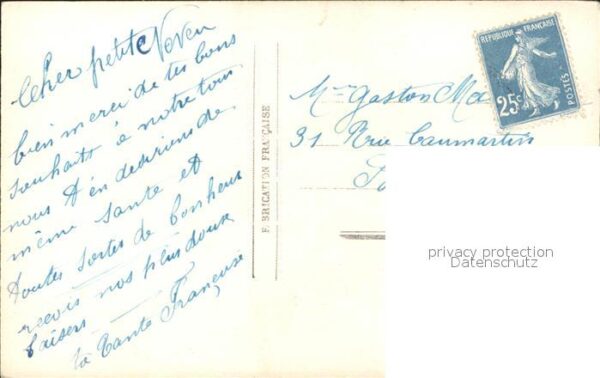 Cher petit Neveu
bien merci de tes bons
souhaits à notre tour
nous t'en desirons de
même santé et
toutes sortes de bonheur
reçois nos plus doux
baisers
ta tante Françoise
F. BRICATION FRANÇAISE
REPUBLIQUE FRANÇAISE
25c
POSTES
Mr Gaston
31 Rue Caumartin
privacy protection
Datenschutz